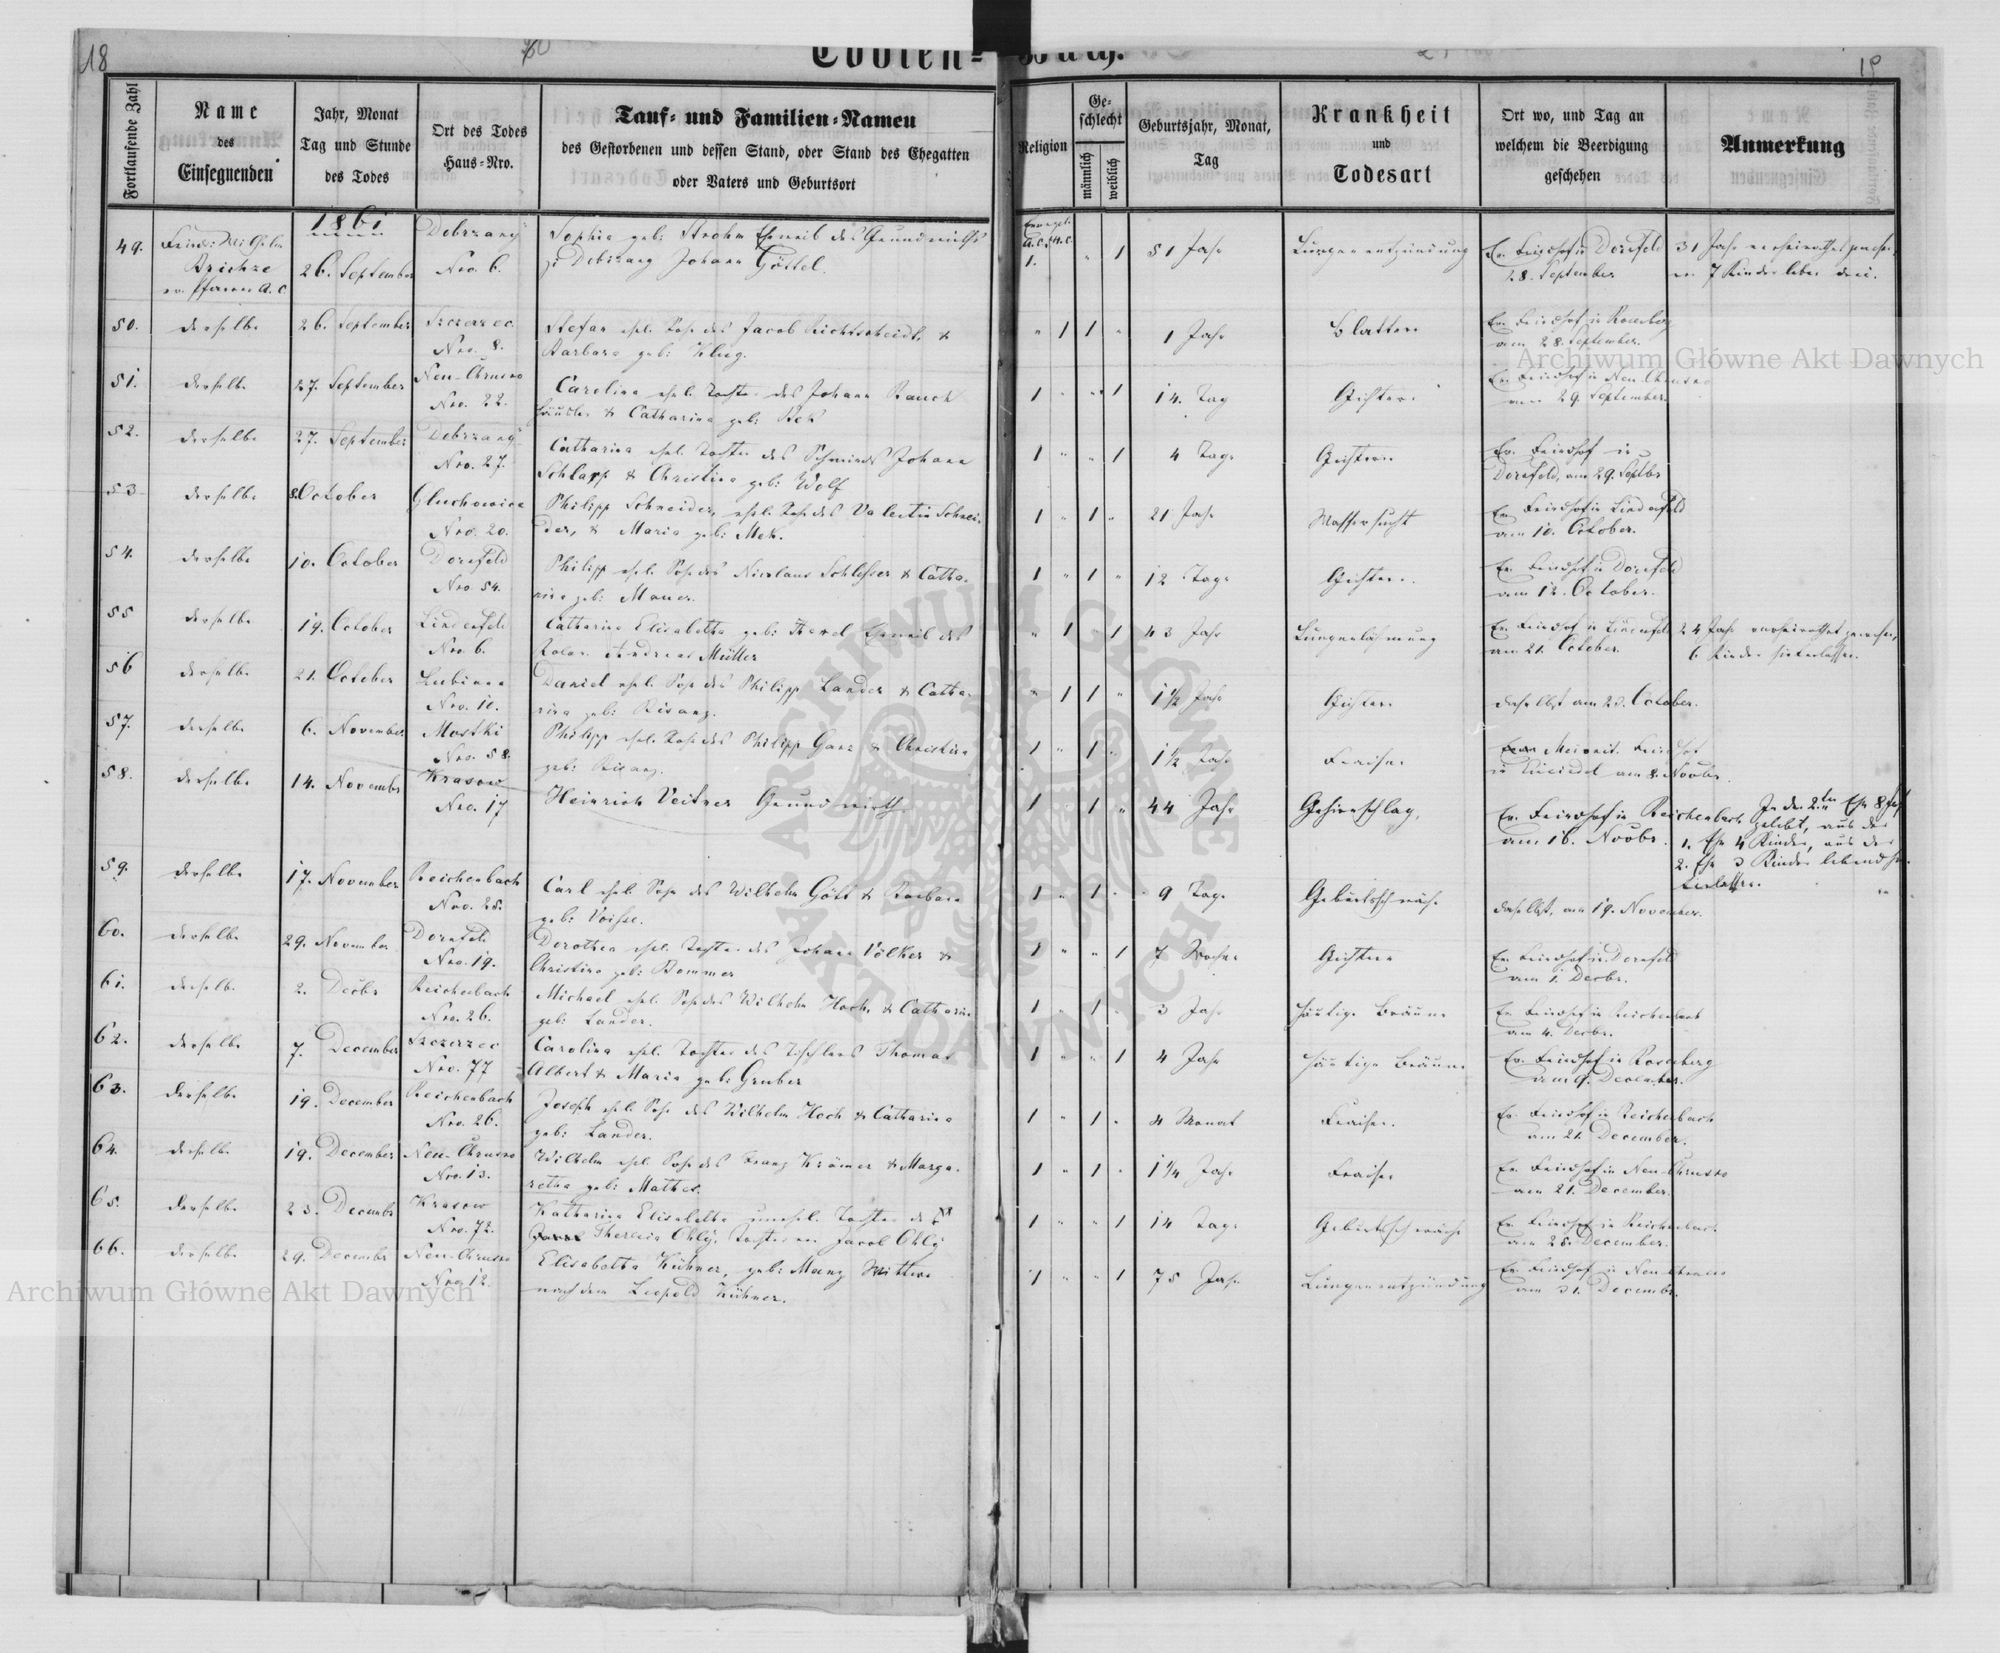 18
19
Todten-Buch.
Fortlaufende Zahl
Name
des
Einsegnenden
Jahr, Monat
Tag und Stunde
des Todes
Ort des Todes
Haus-Nro.
Tauf- und Familien-Namen
des Gestorbenen und dessen Stand, oder Stand des Ehegatten
oder Vaters und Geburtsort
Religion
Ge-
schlecht
männlich
weiblich
Geburtsjahr, Monat,
Tag
Krankheit
und
Todesart
Ort wo, und Tag an
welchem die Beerdigung
geschehen
Anmerkung
1861
49. 26. September Nro. 6.
Sophia geb: Strohm Eheweib des Grundwirths
Johann Göttel.
A.C. H.C.
1. " 1 51 Jahr Lungenentzündung Ev. Friedhof in Dornfeld
28. September
31 Jahr verheirathet gewesen,
7 Kinder leben drei.
50. derselbe 26. September Szczerzec
Nro. 8.
Stefan ehel. Sohn des Jacob &
Barbara geb: Klug.
" 1 1 " 1 Jahr Blattern Ev. Friedhof in Rosenberg
am 28. September.
51. derselbe 27. September Neu-Chrusno
Nro. 22.
Carolina ehel. Tochter des Johann Rauch
Häusler & Catharina geb: Bek
1 " " 1 14. Tag Gichter Ev. Friedhof in Neu-Chrusno
am 29. September.
52. derselbe 27. September
Nro. 27.
Catharina ehel. Tochter des Schmieds Johann
Schlapp & Christina geb: Wolf
1 " " 1 4 Tage Gichtern Ev. Friedhof in
Dornfeld, am 29. Septbr
53 derselbe 8. October Gluchowice
Nro. 20.
Philipp Schneider, ehel. Sohn des Valentin Schnei-
der, & Maria geb: Mek.
1 " 1 " 21 Jahr Wassersucht Ev. Friedhof in Lindenfeld
am 10. October.
54. derselbe 10. October Dornfeld
Nro. 54.
Philipp ehel. Sohn des Nicolaus Schlosser & Catha-
rina geb: Mauer.
1 " 1 " 12 Tage Gichtern. Ev. Friedhof in Dornfeld
am 12. October.
55 derselbe 19. October Lindenfeld
Nro. 6.
Catharina Elisabetha geb: Eheweib des
Andreas Müller
" 1 " 1 43 Jahr Lungenlähmung Ev. Friedhof in Lindenfeld
am 21. October.
24 Jahr verheirathet gewesen,
6 Kinder hinterlassen.
56 derselbe 21. October Lubiana
Nro. 10.
Daniel ehel. Sohn des Philipp Lander & Catha-
rina geb: Bisanz.
" 1 1 " 1 1/2 Jahr Gichtern daselbst am 23. October.
57. derselbe 6. November Mostki
Nro. 58.
Philipp ehel. Sohn des Philipp Ganz & Christina
geb: Bisanz.
1 " 1 " 1 1/2 Jahr Fraisen Menonit. Friedhof
in Einsiedel am 8. Novbr.
58. derselbe 14. November Krasow
Nro. 17
Heinrich Veitner Grundwirth
1 " 1 " 44 Jahr Gehirnschlag, Ev. Friedhof in Reichenbach
am 16. Novbr.
In der 2ten Ehe 8 Jahr
gelebt, aus der
1. Ehe 4 Kinder, aus der
2. Ehe 3 Kinder lebend hin-
terlassen.
59. derselbe 17. November Reichenbach
Nro. 28.
Carl ehel. Sohn des Wilhelm Gött & Barbara
geb: Voisse.
1 " 1 " 9 Tage Geburtsschwäche daselbst, am 19. November.
60. derselbe 29. November Dornfeld
Nro. 19.
Dorothea ehel. Tochter des Johann Völker &
Christina geb: Bommer
1 " " 1 7 Wochen Gichtern Ev. Friedhof in Dornfeld
am 1. Decbr.
61. derselbe 2. Decbr Reichenbach
Nro. 26.
Michael ehel. Sohn des Wilhelm Hoch, & Catharina
geb: Lander.
1 " 1 " 3 Jahr häutige Bräune Ev. Friedhof in Reichenbach
am 4. Decbr.
62. derselbe 7. December Szczerzec
Nro. 77
Carolina ehel. Tochter des Tischlers Thomas
Albert & Maria geb: Gruber
1 " " 1 4 Jahr häutige Bräune Ev. Friedhof in Rosenberg
am 9. December.
63. derselbe 19. December Reichenbach
Nro. 26.
Joseph ehel. Sohn des Wilhelm Hoch & Catharina
geb: Lander.
1 " 1 " 4 Monat Fraisen. Ev. Friedhof in Reichenbach
am 21. December.
64. derselbe 19. December Neu-Chrusno
Nro. 13.
Wilhelm ehel. Sohn des Franz Krämer & Marga-
retha geb: Mathes.
1 " 1 " 1 1/4 Jahr Fraisen Ev. Friedhof in Neu-Chrusno
am 21. December.
65. derselbe 23. December Krasow
Nro. 72.
Katharina Elisabetha unehel. Tochter der
Theresia Ohly, Tochter von Jacob Ohly
1 " " 1 14 Tage Geburtsschwäche Ev. Friedhof in Reichenbach
am 25. December.
66. derselbe 29. December Neu-Chrusno
Nro. 12.
Elisabetha Kühner, geb: Manz Wittwe
nach dem Leopold Kühner.
1 " " 1 75 Jahr Lungenentzündung Ev. Friedhof in Neu-Chrusno
am 31. December.
Archiwum Główne Akt Dawnych
Archiwum Główne Akt Dawnych
ARCHIWUM GŁÓWNE AKT DAWNYCH